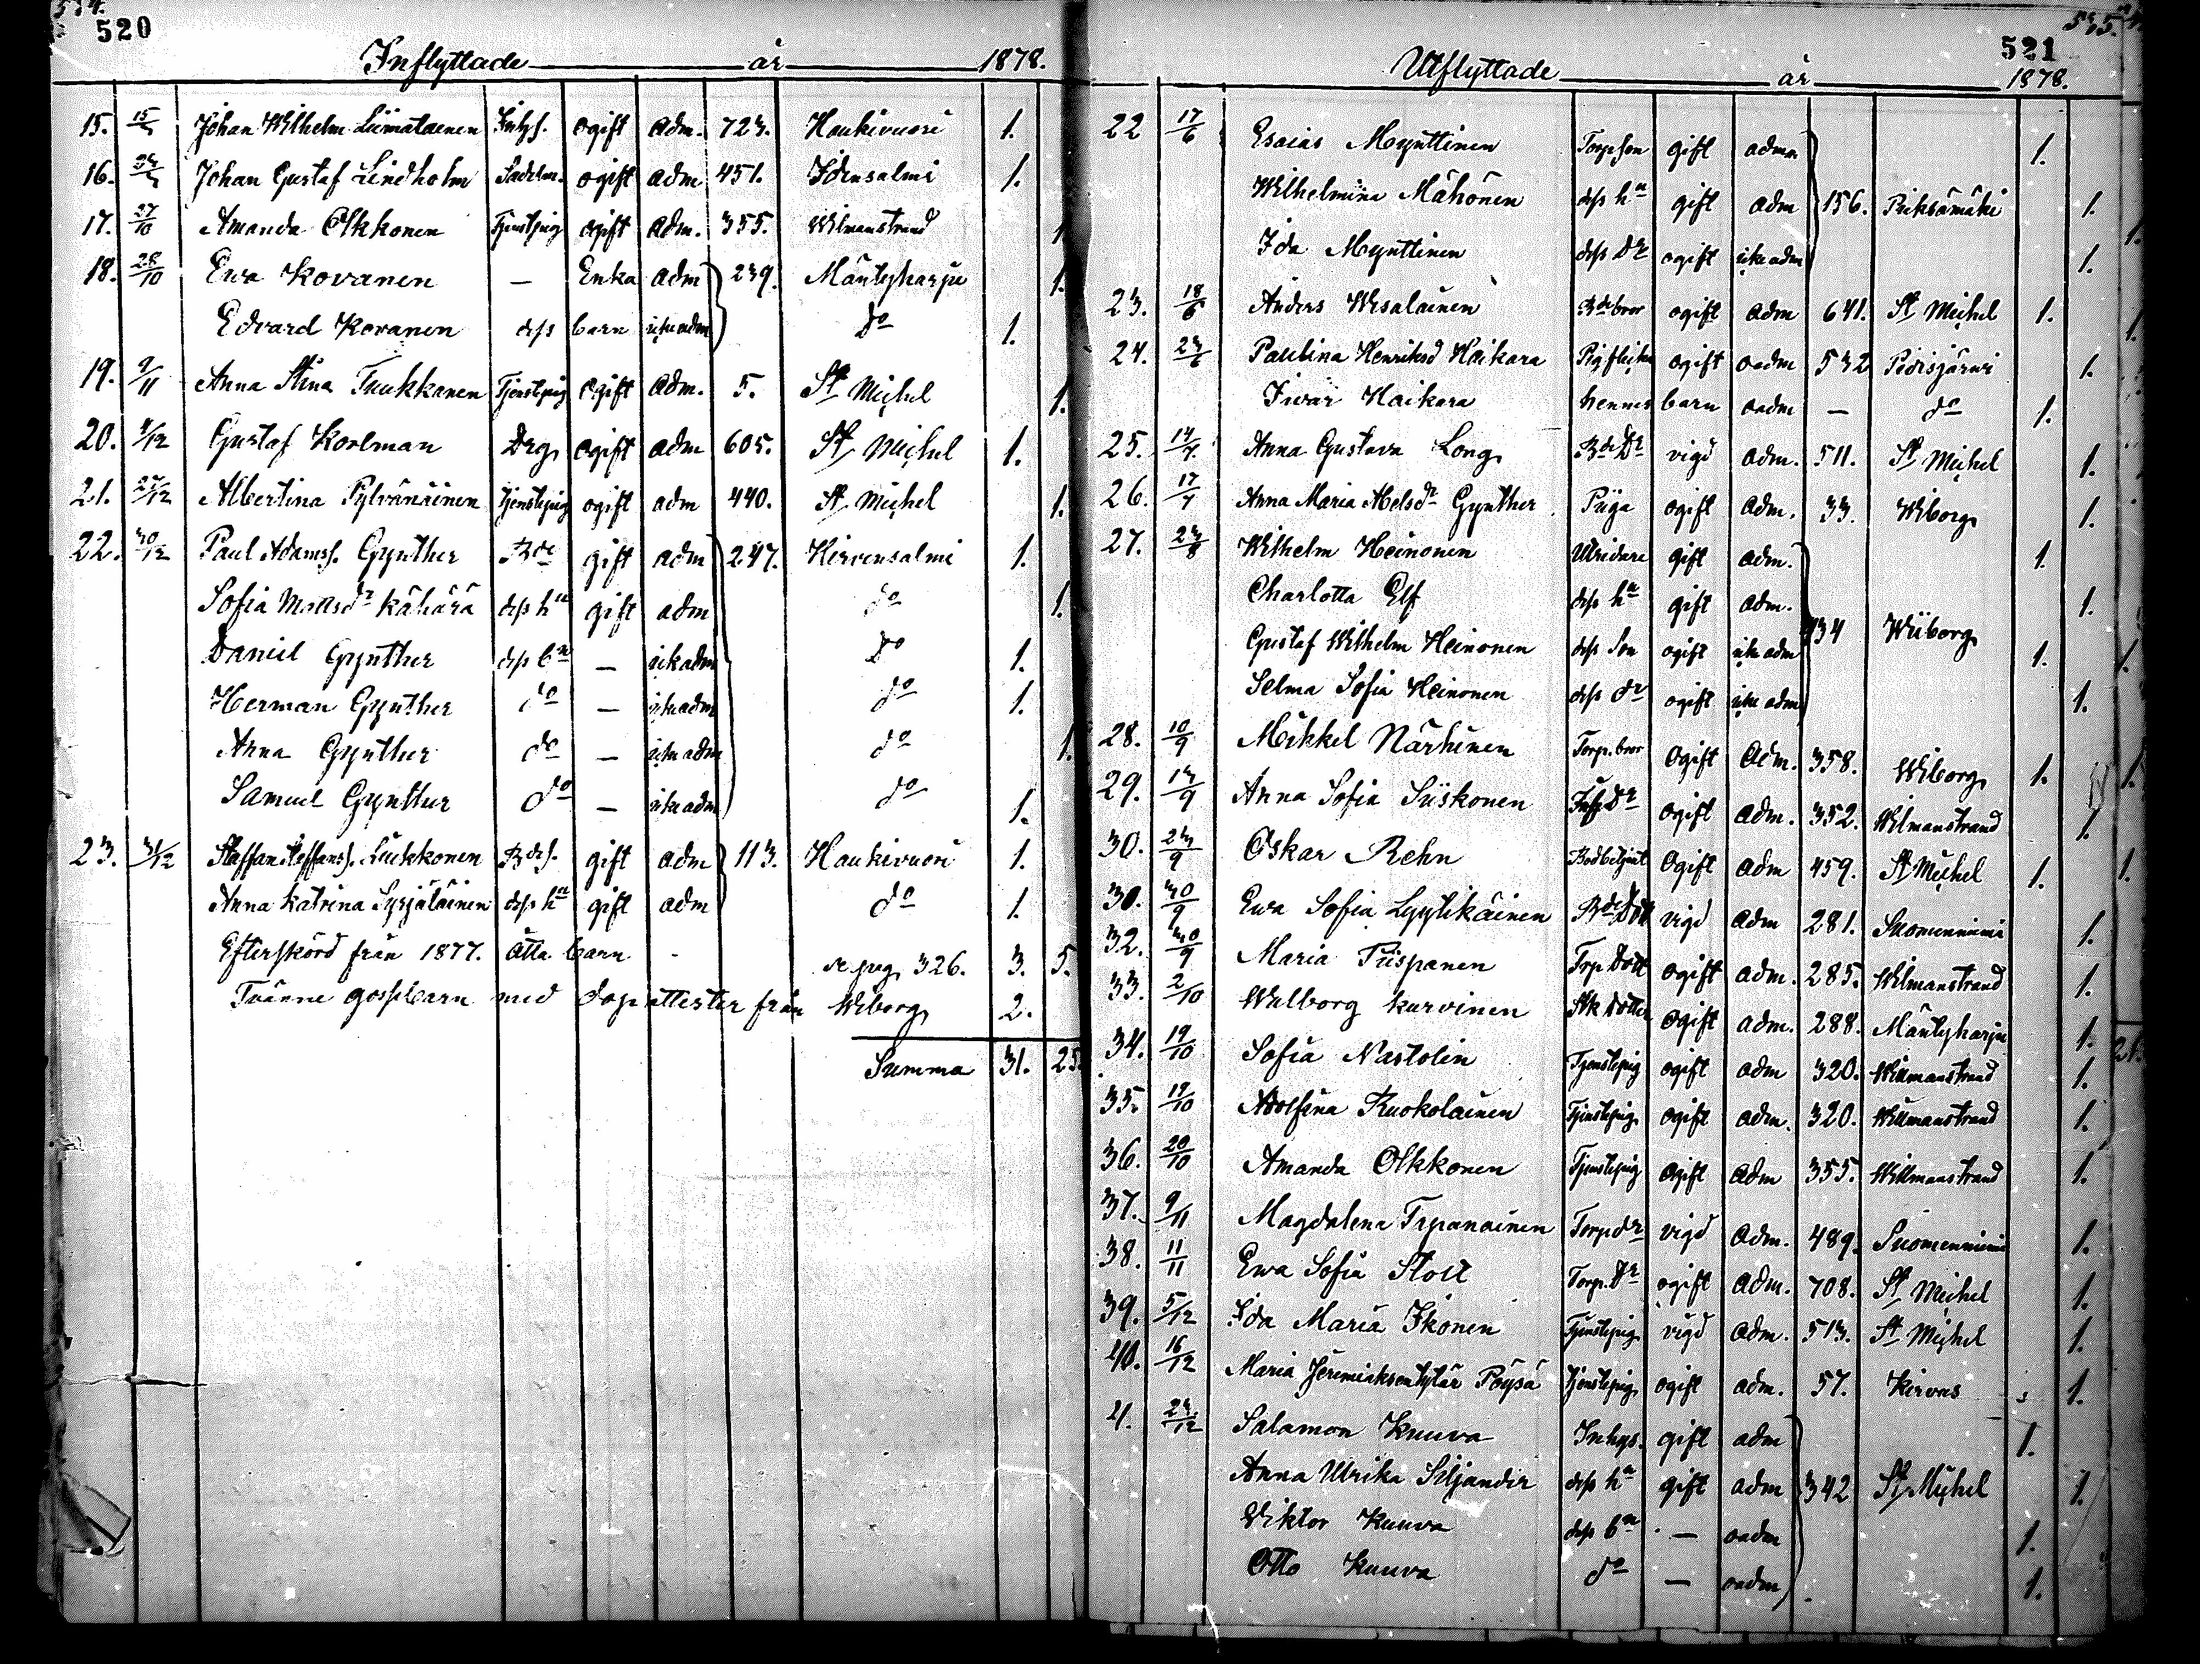 574.
520
Inflyttade år 1878.
15. 15/5 Johan Wilhelm Liimatainen Inhys. ogift adm. 723. Haukivuori 1.
16. Johan Gustaf Lindholm Sadelm. ogift adm 451. Idensalmi 1.
17. 27/10 Amanda Olkkonen Tjenstepig ogift adm. 355. Wilmanstrand 1.
18. 28/10 Ewa Kovanen — Enka adm 239. Mäntyharju 1.
Edvard Kovanen dess barn icke adm do 1.
19. 9/11 Anna Stina Tuukkanen Tjenstepig ogift adm. 5. St Michel 1.
20. 4/12 Gustaf Korlman Drg ogift adm 605. St Michel 1.
21. 27/12 Albertina Pylvänäinen Tjenstepig ogift adm 440. St Michel 1.
22. 30/12 Paul Adamss. Gynther Bde gift adm 247. Hirvensalmi 1.
Sofia Mattsdr Kähärä dess hu gift adm do 1.
Daniel Gynther dess bn — icke adm do 1.
Herman Gynther do — icke adm do 1.
Anna Gynther do — icke adm do 1.
Samuel Gynther do — icke adm do 1.
23. 31/12 Staffan Steffanss. Liukkonen Bdes. gift adm 113. Haukivuori 1.
Anna Katrina Syrjäläinen dess hu gift adm do 1.
Efterskörd från 1877. åtta barn se pag. 326. 3. 5.
Tvänne gossebarn med dopattester från Wiborg 2.
Summa 31. 25.
575.
521
Utflyttade år 1878.
22 17/6 Esaias Mynttinen Torp son gift adm 1.
Wilhelmina Mähönen dess hu gift adm 156. Pieksämäki 1.
Ida Mynttinen dess Dr ogift icke adm 1.
23. 18/6 Anders Wesalainen Bde bror ogift adm 641. St Michel 1.
24. 23/6 Paulina Henriksd Haikara ogift oadm 532 Pidisjärvi 1.
Iivar Haikara hennes barn oadm — do 1.
25. 14/7 Anna Gustava Long Bde Dr vigd adm. 511. St Michel 1.
26. 17/7 Anna Maria Abelsdr Gynther Piga ogift adm. 33. Wiborg 1.
27. 23/8 Wilhelm Heinonen Utridare gift adm. 1.
Charlotta Elf dess hu gift adm. 434 Wiborg 1.
Gustaf Wilhelm Heinonen dess Son ogift icke adm 1.
Selma Sofia Heinonen dess dr ogift icke adm 1.
28. 10/9 Mikkel Närhinen Torp. bror ogift adm. 358. Wiborg 1.
29. 13/9 Anna Sofia Siiskonen Inhs Dr ogift adm. 352. Wilmanstrand 1.
30. 23/9 Oskar Rehn Bodbetjent ogift adm 459. St Michel 1.
30. 30/9 Ewa Sofia Lyytikäinen Bde Dott vigd adm 281. Suomenniemi 1.
32. 30/9 Maria Piispanen Trp Dott ogift adm. 285. Wilmanstrand 1.
33. 2/10 Walborg Kurvinen ogift adm. 288. Mäntyharju 1.
34. 19/10 Sofia Nastolin Tjenstepig ogift adm 320. Willmanstrand 1.
35. 19/10 Adolfina Kuokolainen Tjenstepig ogift adm. 320. Willmanstrand 1.
36. 20/10 Amanda Olkkonen Tjenstepig ogift adm 355. Willmanstrand 1.
37. 9/11 Magdalena Tepanainen Torp dr vigd adm. 489. Suomenniemi 1.
38. 11/11 Ewa Sofia Stolt Torp. Dr ogift adm. 708. St Michel 1.
39. 5/12 Ida Maria Ikonen Tjenstepig vigd adm. 513. St Michel 1.
40. 16/12 Maria Jeremiaksentytär Pöysä Tjenstepig ogift adm. 57. Kirvus 1.
41. 23/12 Salamon Kuuva Inhys. gift adm 1.
Anna Ulrika Siljander dess hu gift adm 342 St Michel 1.
Viktor Kuuva dess bn — oadm 1.
Otto Kuuva do — oadm 1.